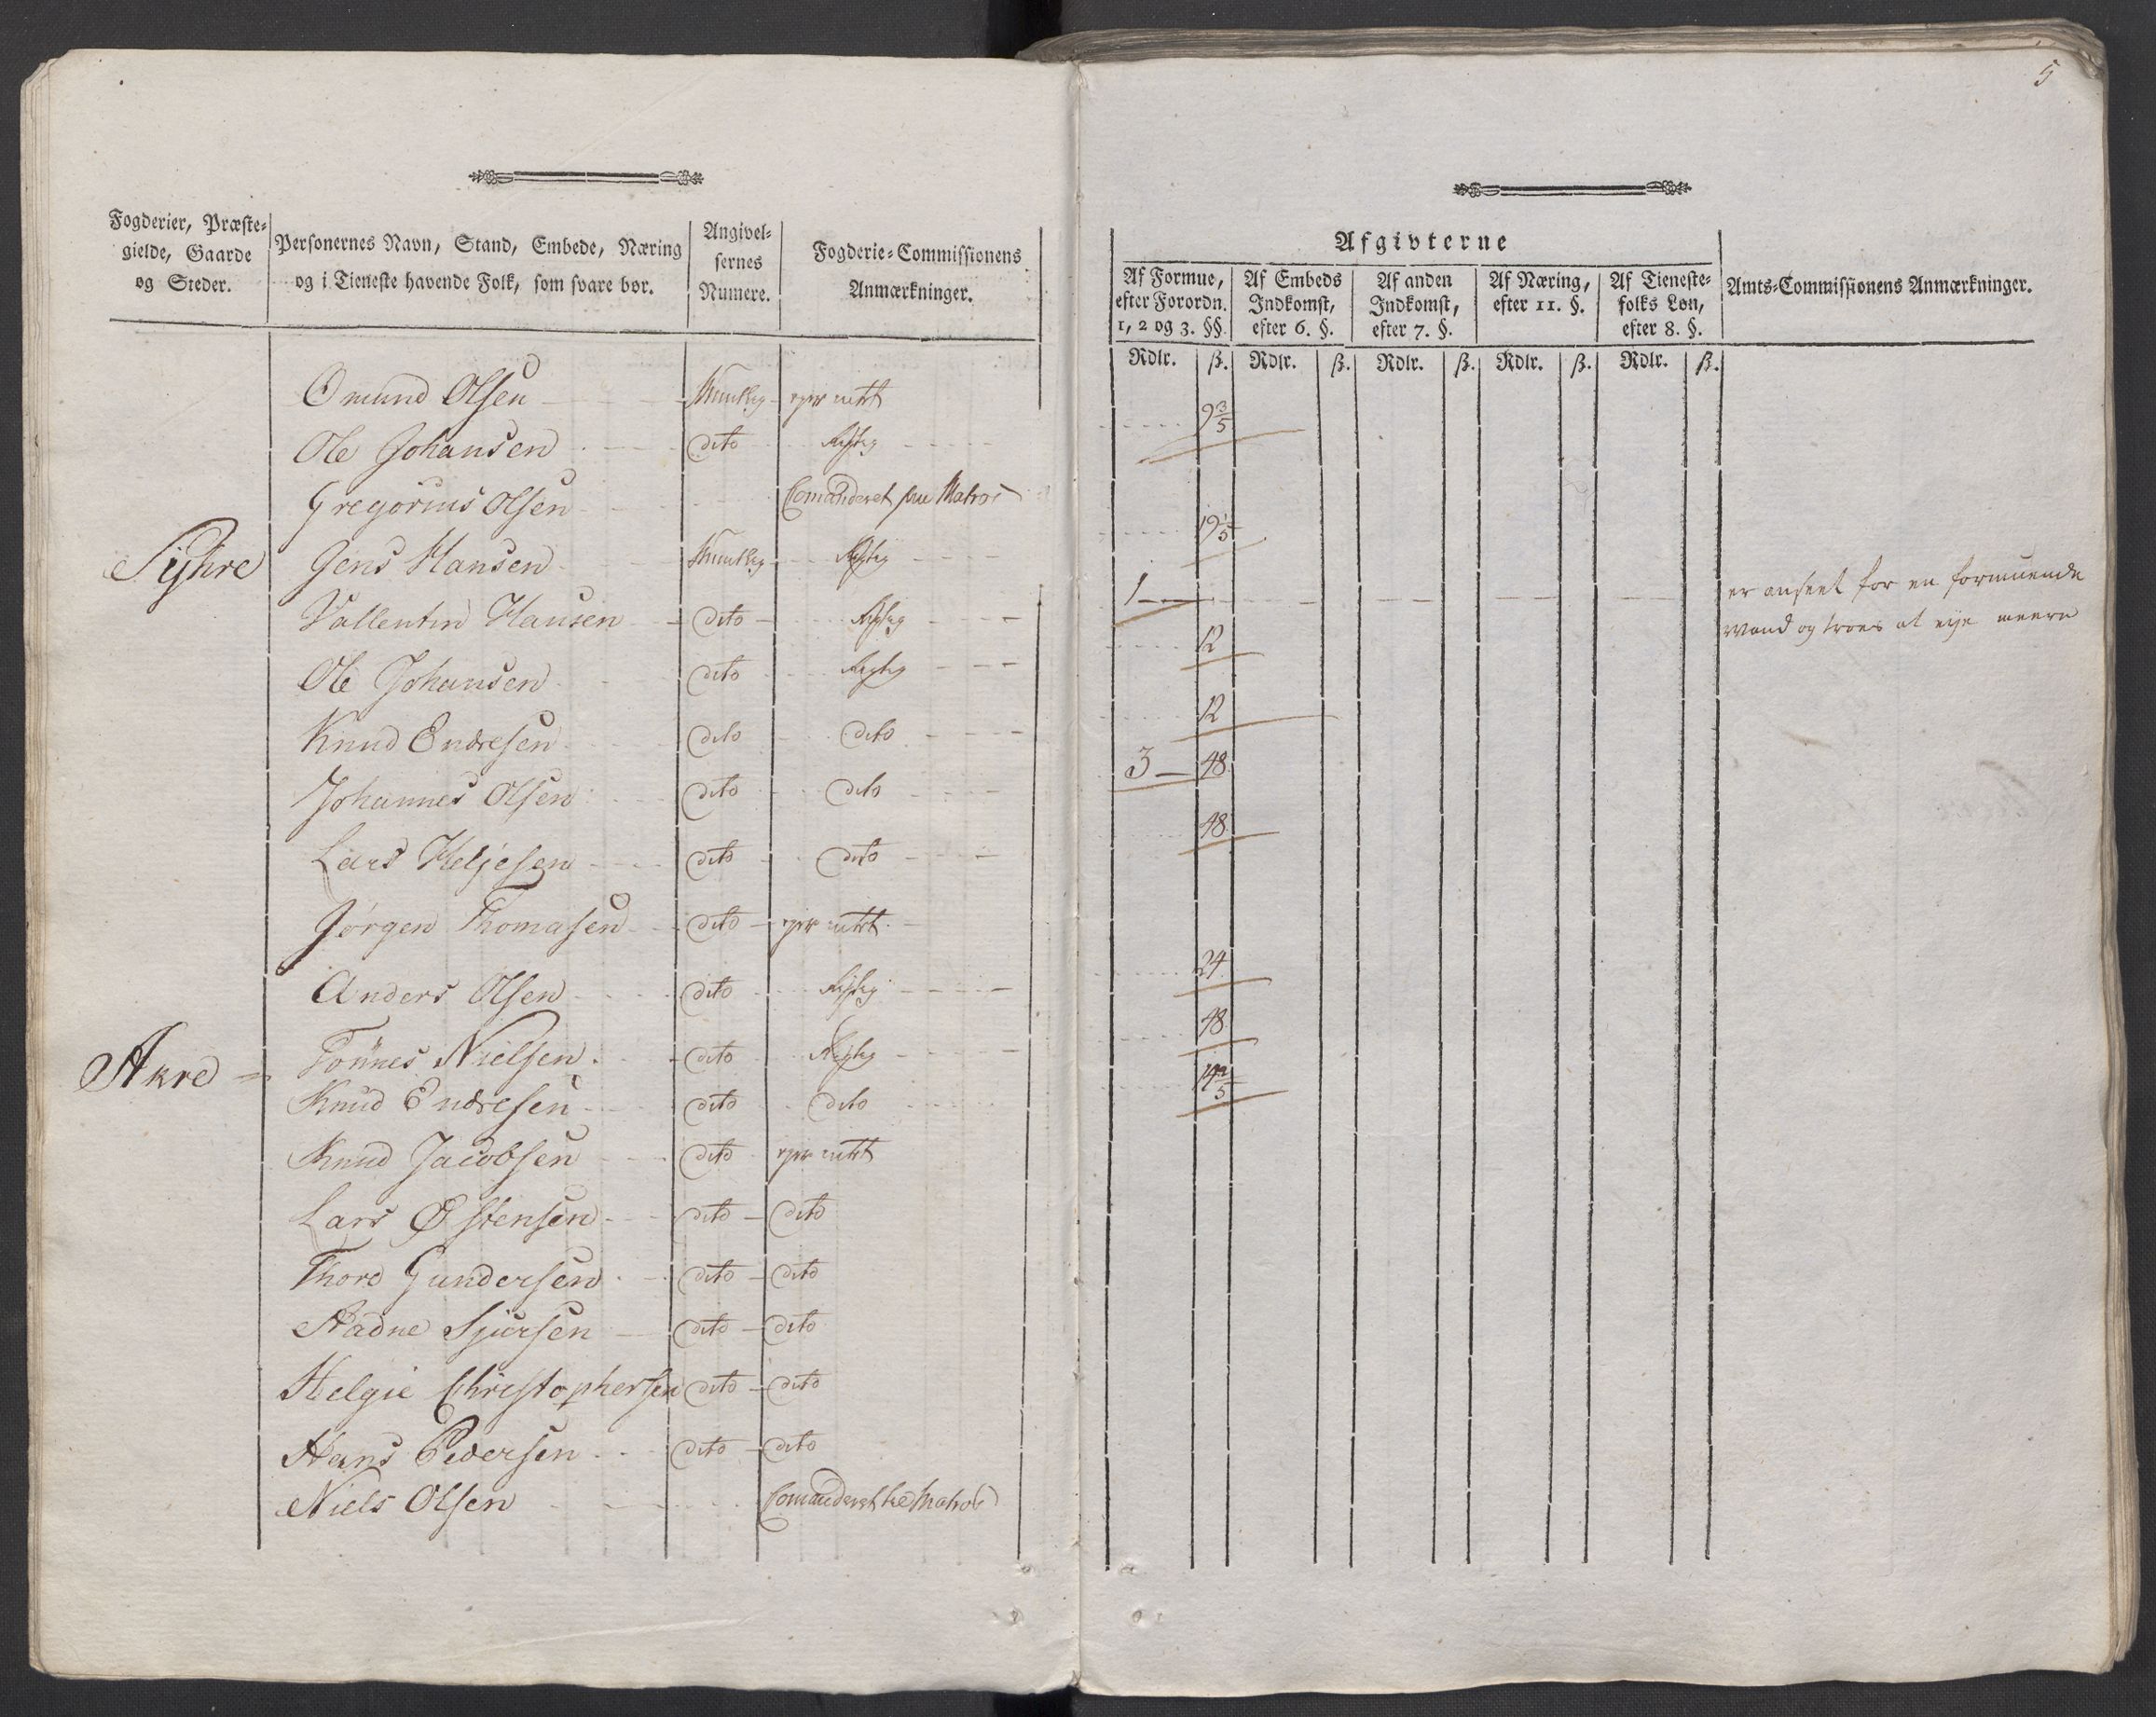 5
Fogderier, Præste-
gielde, Gaarde
og Steder.
Personernes Navn, Stand, Embede, Næring
og i Tieneste havende Folk, som svare bør.
Angivel-
sernes
Numere.
Fogderie-Commissionens
Anmærkninger.
Afgivterne
Af Formue,
efter Forordn.
1, 2 og 3. §§.
Af Embeds
Indkomst,
efter 6. §.
Af anden
Indkomst,
efter 7. §.
Af Næring,
efter 11. §.
Af Tieneste-
folks Løn,
efter 8. §.
Amts-Commissionens Anmærkninger.
Rdlr. ß. Rdlr. ß. Rdlr. ß. Rdlr. ß. Rdlr. ß.
Omund Olsen Mundtlig ejer intet
Ole Johansen dito Rigtig 9 3/5
Gregorius Olsen Comanderet som Matros
Jens Hansen Mundtlig Rigtig 19 1/5
Vallentin Hansen dito Rigtig 1 er anseet for en formuende
Mand og troes at eye meere
Ole Johansen dito Rigtig 12
Knud Endresen dito dito 12
Johannes Olsen dito dito 3 48
Lars Heljesen dito dito 48
Jørgen Thomasen dito ejer intet
Anders Olsen dito Rigtig 24
Akre Tønnes Nielsen dito Rigtig 48
Knud Endresen dito dito 14 2/5
Knud Jacobsen dito ejer intet
Lars Østensen dito dito
Thore Gundersen dito dito
Aadne Sjursen dito dito
Helgie Christophersen dito dito
Hans Pedersen dito dito
Niels Olsen Comanderet til Matros